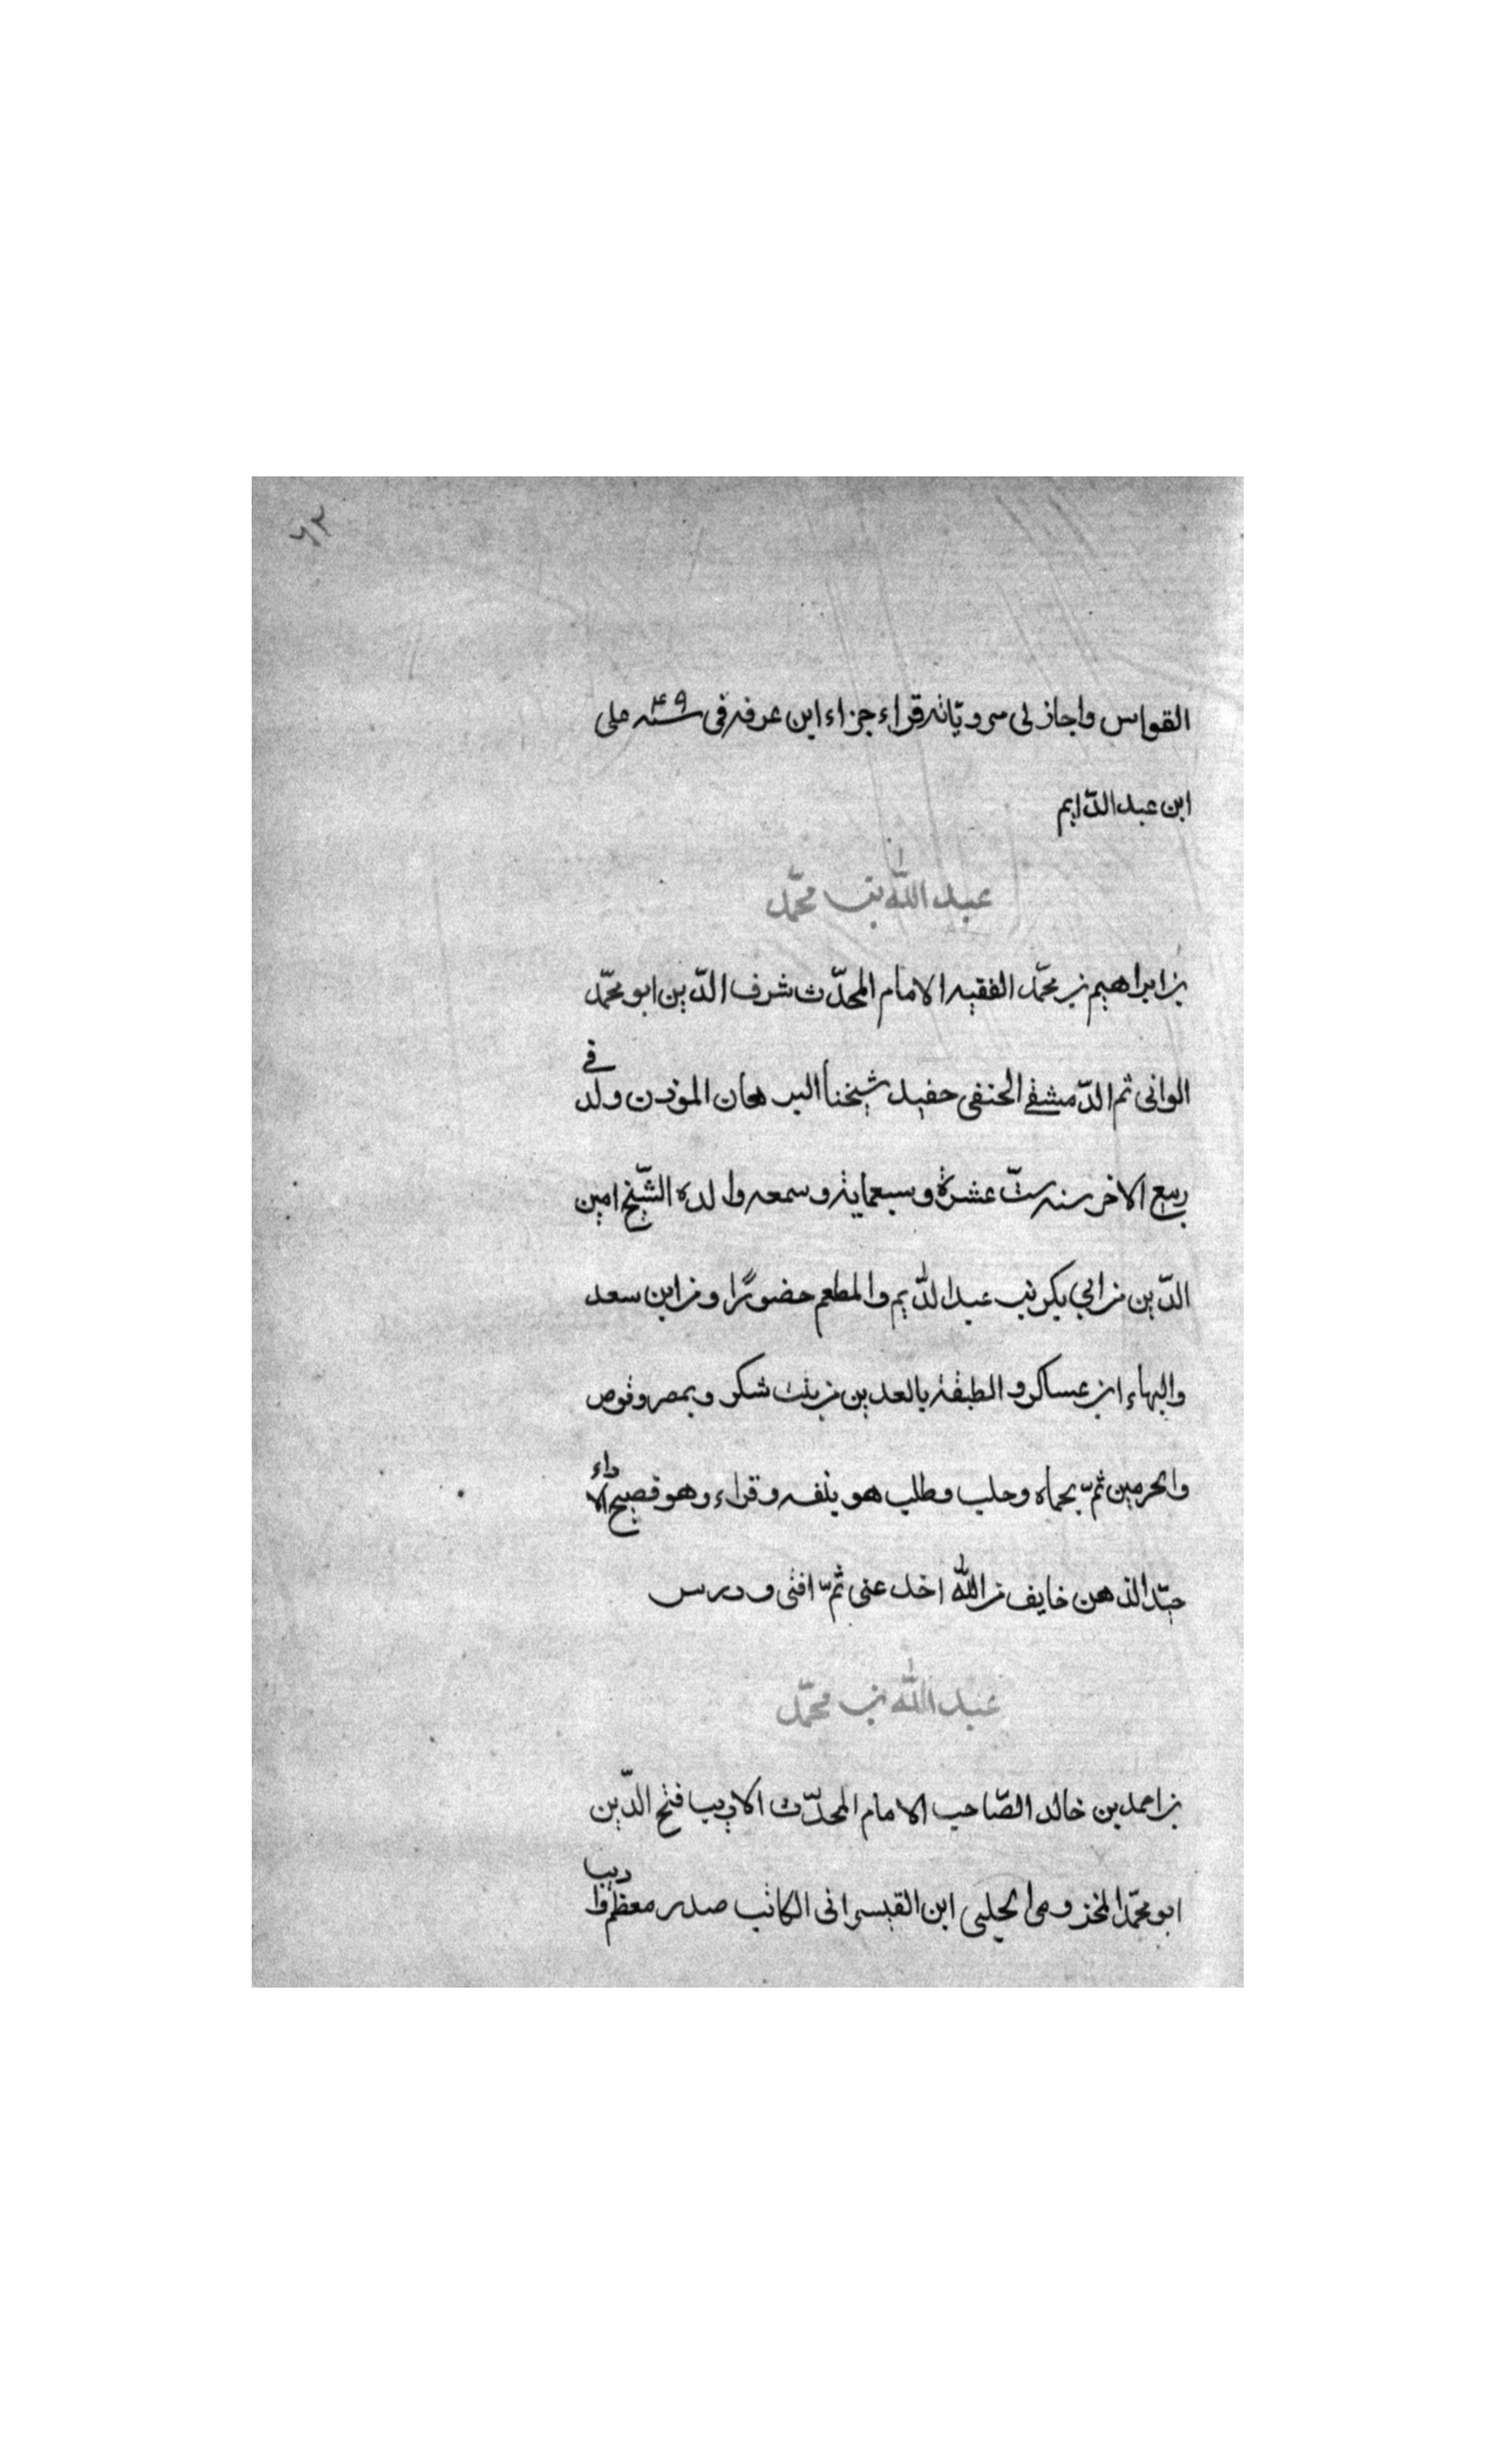 ٦٢
القواس واجاز لى مروياته قراء جزاء ابن عرفه فى سنه ٤٩ على
ابن عبد الدّايم
عبد الله بن محمّد
بن ابراهيم بن محمّد الفقيه الامام المحدّث شرف الدّين ابو محمّد
الوانى ثم الدّمشقى الحنفى حفيد شيخنا البرهان المؤذن ولد فى
ربيع الاخر سنه ستّ عشرة وسبعماية وسمعه والده الشّيخ امين
الدّين من ابي بكر بن عبد الدّايم والمطعم حضورًا ومن ابن سعد
والبهاء ابن عساكر و الطبقة بالعدين من بنت شكر وبمصر وقوص
والحرمين ثمّ بحماه وحلب وطلب هو بنفسه وقراء وهو فصيح الاداء
جيّد الذهن خايف من الله اخذ عنى ثمّ افتى ودرس
عبد الله بن محمّد
بن احمد بن خالد الصّاحب الامام المحدّث الاديب فتح الدّين
ابو محمّد المخزومى الحلبى ابن القيسرانى الكاتب صدر معظّم واديب